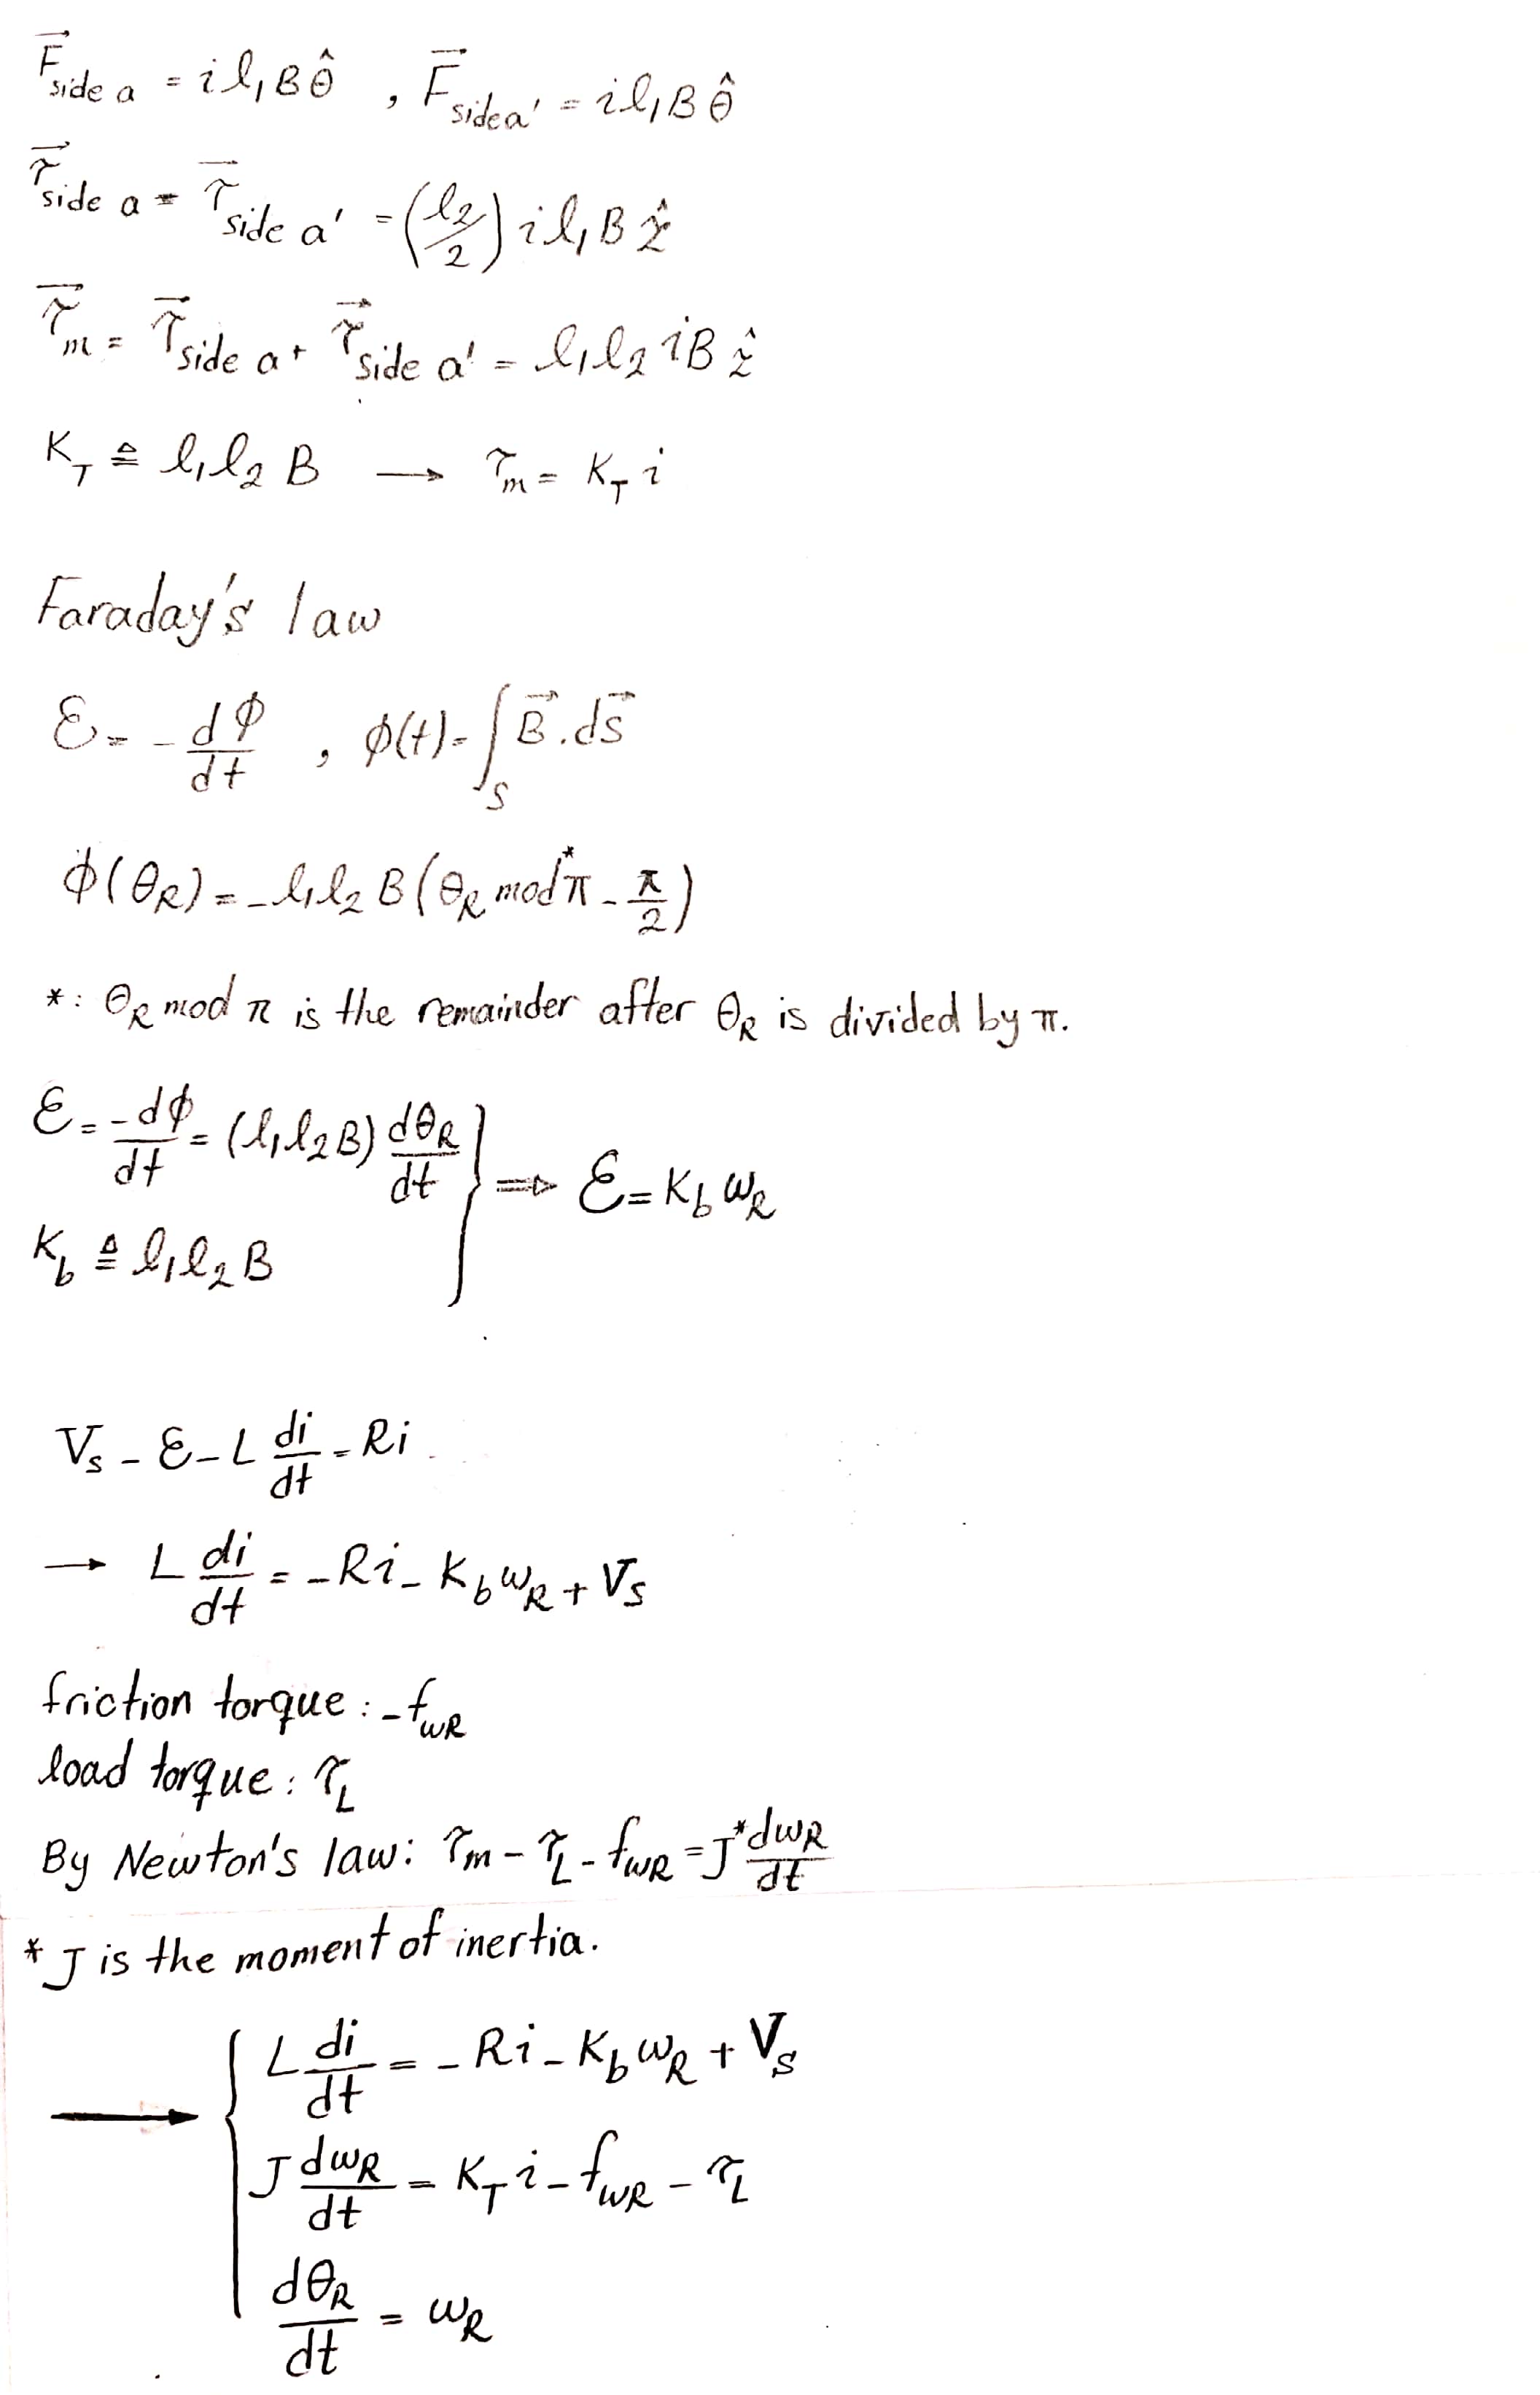 F⃗_side a = i l₁ B θ̂ , F⃗_side a' = i l₁ B θ̂
τ⃗_side a = τ⃗_side a' = (l₂/2) i l₁ B ẑ
τ⃗_m = τ⃗_side a + τ⃗_side a' = l₁ l₂ i B ẑ
K_T ≜ l₁ l₂ B → τ_m = K_T i
Faraday's law
ℰ = - dϕ/dt , ϕ(t) = ∫_S B⃗ . dS⃗
ϕ(θ_R) = - l₁ l₂ B (θ_R mod* π - π/2)
*: θ_R mod π is the remainder after θ_R is divided by π.
ℰ = -dϕ/dt = (l₁ l₂ B) dθ_R/dt } ⇒ ℰ = K_b ω_R
K_b ≜ l₁ l₂ B
V_s - ℰ - L di/dt = Ri
→ L di/dt = - Ri - K_b ω_R + V_s
friction torque : - f_ωR
load torque : τ_L
By Newton's law: τ_m - τ_L - f_ωR = J* dω_R/dt
* J is the moment of inertia.
→ { L di/dt = - Ri - K_b ω_R + V_s
J dω_R/dt = K_T i - f_ωR - τ_L
dθ_R/dt = ω_R